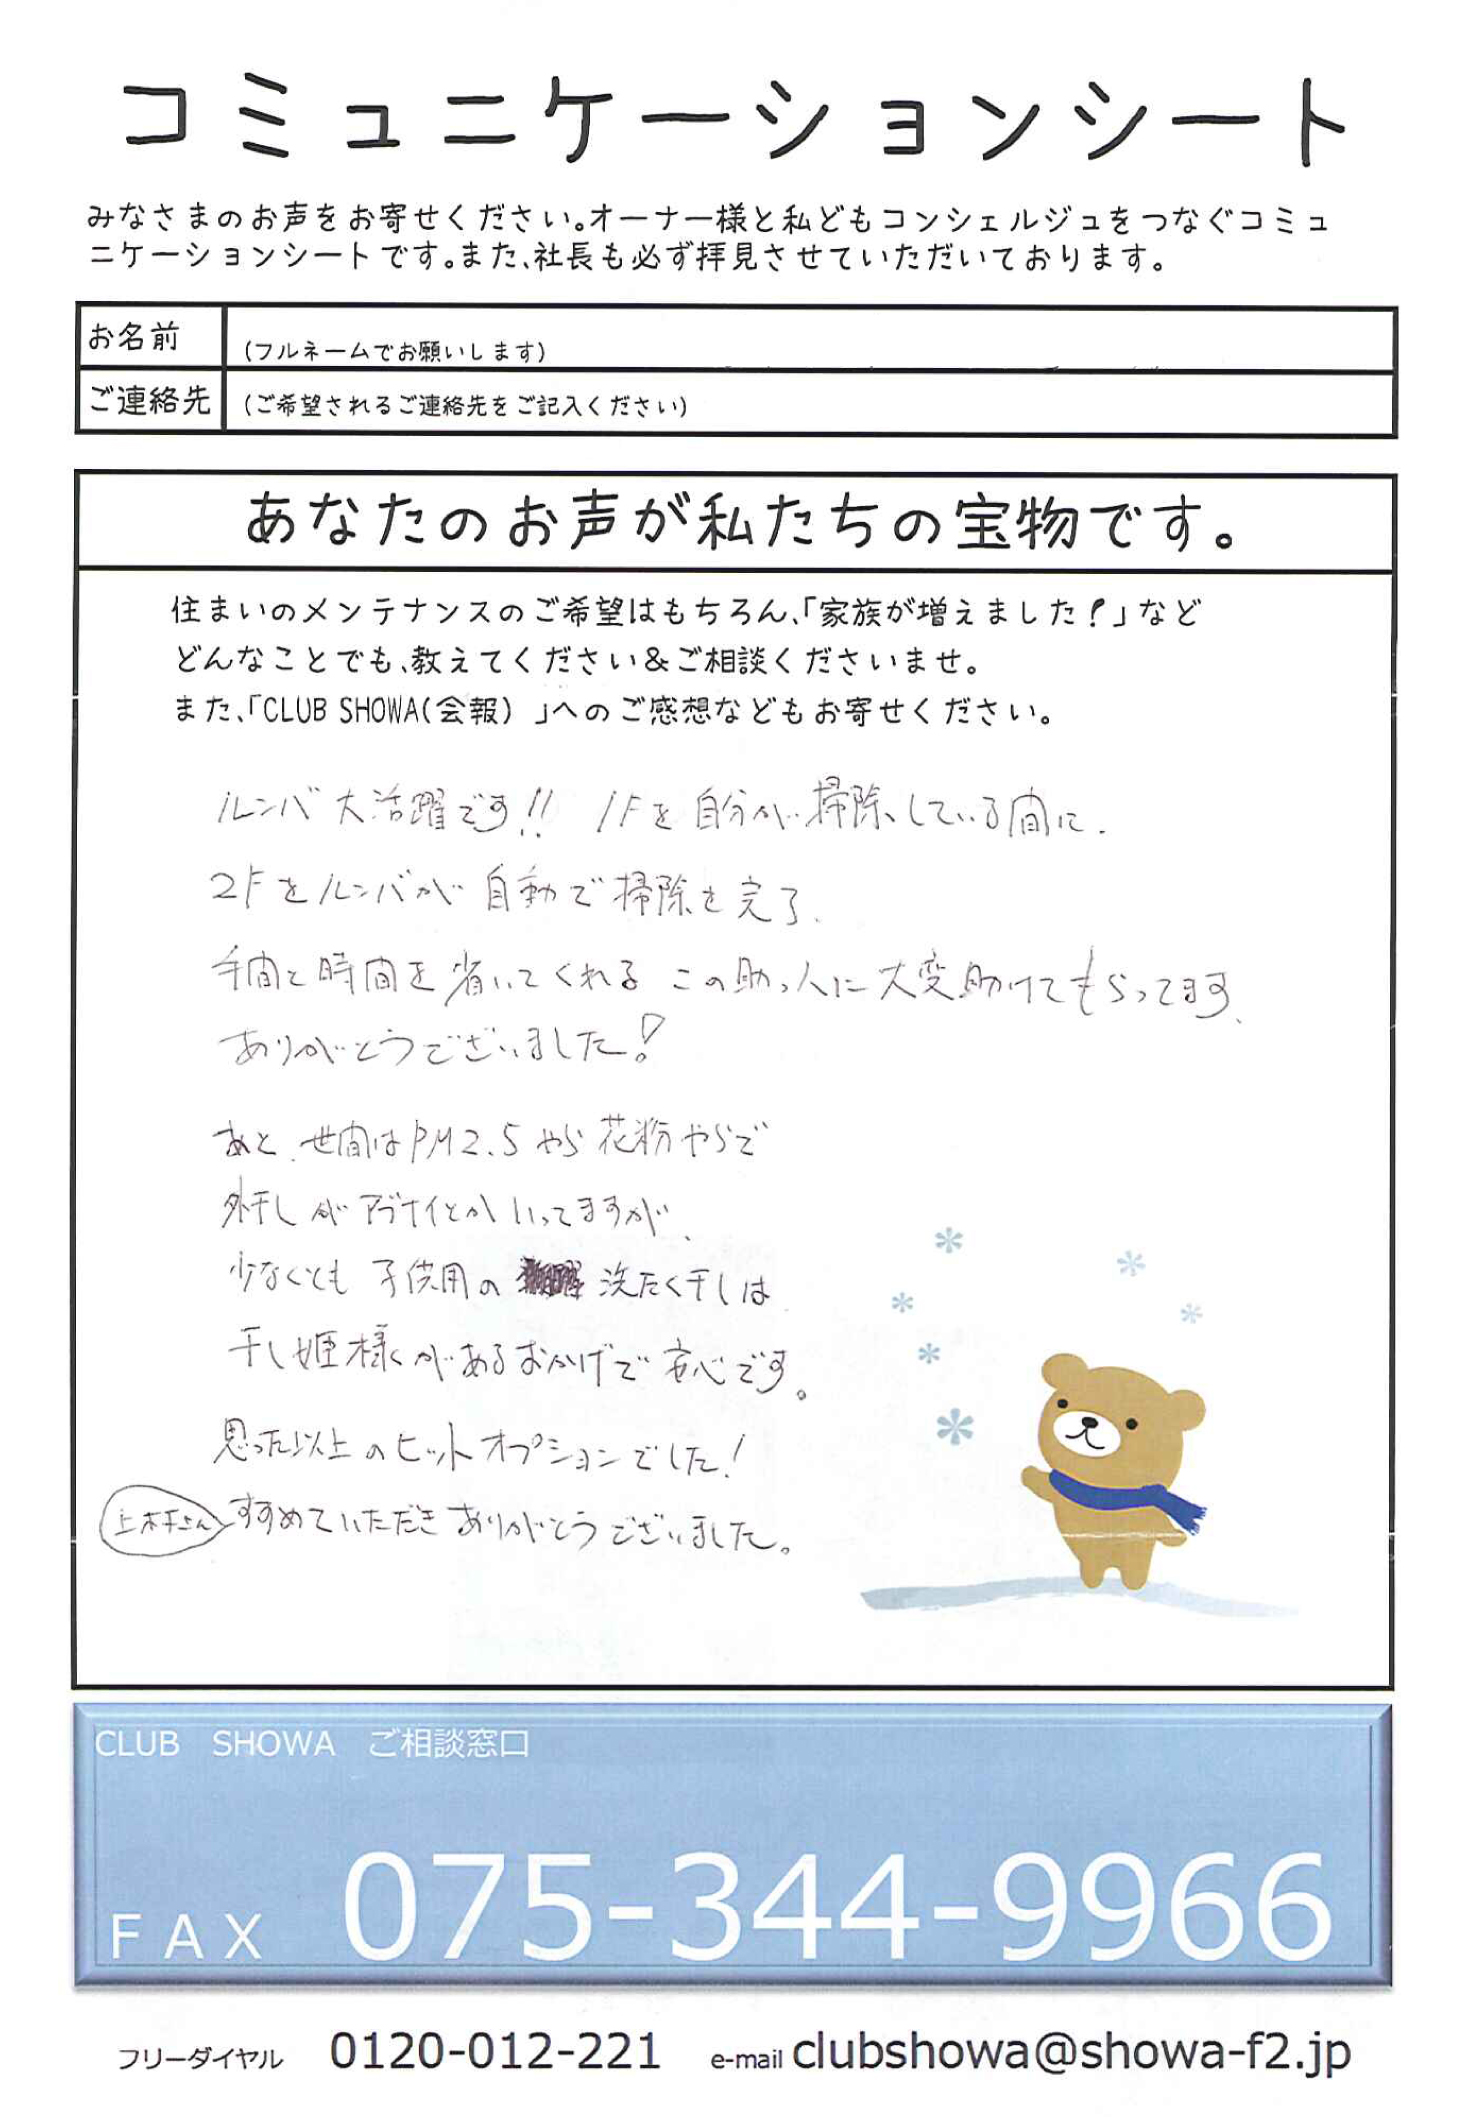 コミュニケーションシート
みなさまのお声をお寄せください。オーナー様と私どもコンシェルジュをつなぐコミュ
ニケーションシートです。また、社長も必ず拝見させていただいております。
お名前 (フルネームでお願いします)
ご連絡先 (ご希望されるご連絡先をご記入ください)
あなたのお声が私たちの宝物です。
住まいのメンテナンスのご希望はもちろん、「家族が増えました!」など
どんなことでも、教えてください&ご相談くださいませ。
また、「CLUB SHOWA(会報) 」へのご感想などもお寄せください。
ルンバ大活躍です!! 1Fを自分が掃除している間に、
2Fをルンバが自動で掃除を完了、
手間と時間を省いてくれるこの助っ人に大変助けてもらってます、
ありがとうございました!
あと、世間はPM2.5やら花粉やらで
外干しがアブナイとかいってますが、
少なくとも子供用の 洗たく干しは
干し姫様があるおかげで安心です。
思った以上のヒットオプションでした!
すすめていただきありがとうございました。
CLUB SHOWA ご相談窓口
FAX 075-344-9966
フリーダイヤル 0120-012-221 e-mail clubshowa@showa-f2.jp